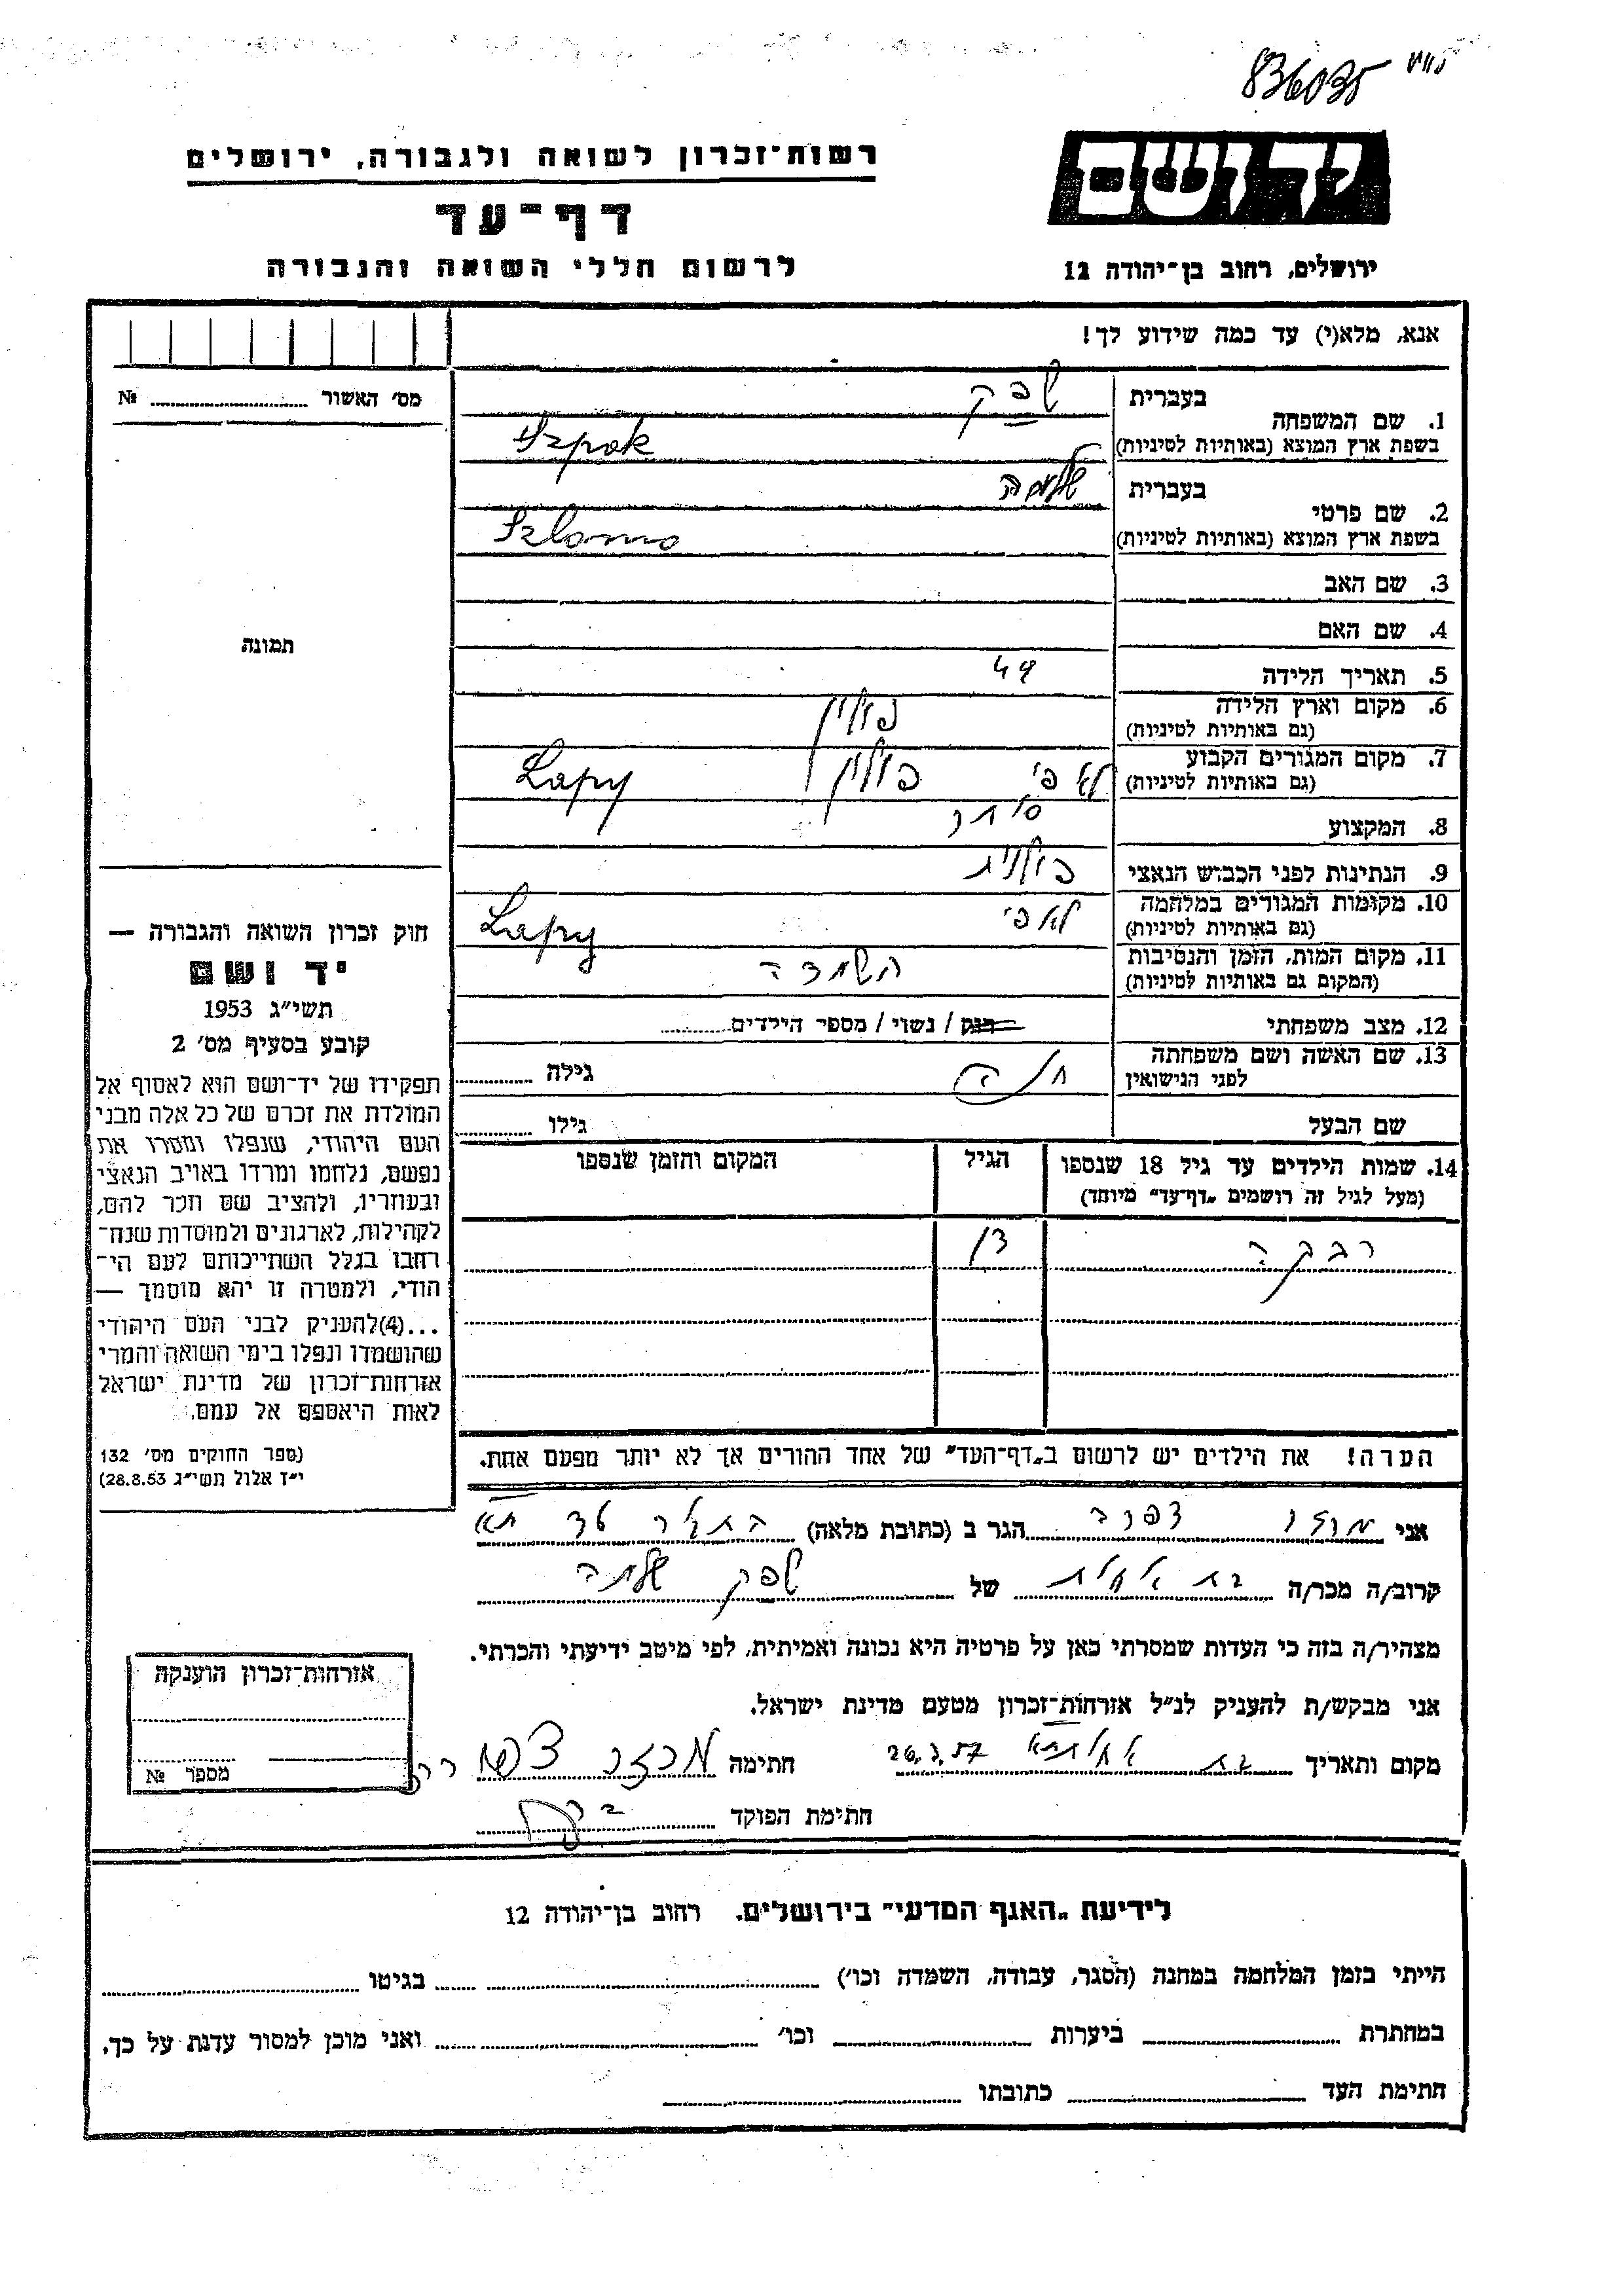 836035
יד ושם
רשות־זכרון לשואה ולגבורה, ירושלים
דף־עד
לרשום חללי השואה והגבורה
ירושלים, רחוב בן־יהודה 12
אנא, מלא(י) עד כמה שידוע לך!
מס׳ האשור № 
1. שם המשפחה בעברית שפק
בשפת ארץ המוצא (באותיות לטיניות) Szpak
2. שם פרטי בעברית שלמה
בשפת ארץ המוצא (באותיות לטיניות) Szlomo
3. שם האב
4. שם האם
תמונה
5. תאריך הלידה 49
6. מקום וארץ הלידה פולין
(גם באותיות לטיניות)
7. מקום המגורים הקבוע
(גם באותיות לטיניות) לאפי פולין Łapy
8. המקצוע סוחר
9. הנתינות לפני הכבוש הנאצי פולנית
10. מקומות המגורים במלחמה
(גם באותיות לטיניות) לאפי Łapy
11. מקום המות, הזמן והנסיבות השמדה
(המקום גם באותיות לטיניות)
12. מצב משפחתי רווק / נשוי / מספר הילדים
13. שם האשה ושם משפחתה
לפני הנישואין חנה גילה
שם הבעל גילו
14. שמות הילדים עד גיל 18 שנספו הגיל המקום והזמן שנספו
(מעל לגיל זה רושמים „דף־עד״ מיוחד)
רבקה 13
הערה! את הילדים יש לרשום ב„דף־העד״ של אחד ההורים אך לא יותר מפעם אחת.
חוק זכרון השואה והגבורה —
יד ושם
תשי״ג 1953
קובע בסעיף מס׳ 2
תפקידו של יד־ושם הוא לאסוף אל
המולדת את זכרם של כל אלה מבני
העם היהודי, שנפלו ומסרו את
נפשם, נלחמו ומרדו באויב הנאצי
ובעוזריו, ולהציב שם וזכר להם,
לקהילות, לארגונים ולמוסדות שנח־
רבו בגלל השתייכותם לעם הי־
הודי, ולמטרה זו יהא מוסמך —
...(4) להעניק לבני העם היהודי
שהושמדו ונפלו בימי השואה והמרי
אזרחות־זכרון של מדינת ישראל
לאות היאספם אל עמם.
(ספר החוקים מס׳ 132
י״ז אלול תשי״ג 28.8.53)
אני הגר ב (כתובת מלאה)
קרוב/ה מכר/ה של שפק שלמה
מצהיר/ה בזה כי העדות שמסרתי כאן על פרטיה היא נכונה ואמיתית, לפי מיטב ידיעתי והכרתי.
אני מבקש/ת להעניק לנ״ל אזרחות־זכרון מטעם מדינת ישראל.
מקום ותאריך חתימה
חתימת הפוקד
אזרחות־זכרון הוענקה
מספר №
לידיעת „האגף המדעי״ בירושלים, רחוב בן־יהודה 12
הייתי בזמן המלחמה במחנה (הסגר, עבודה, השמדה וכו׳) בגיטו
במחתרת ביערות וכו׳ ואני מוכן למסור עדות על כך.
חתימת העד כתובתו